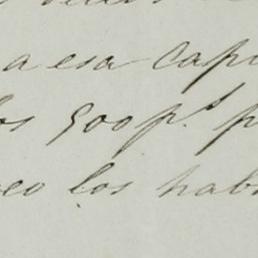 a esa Capi
os 500 p.s p
eo los hab